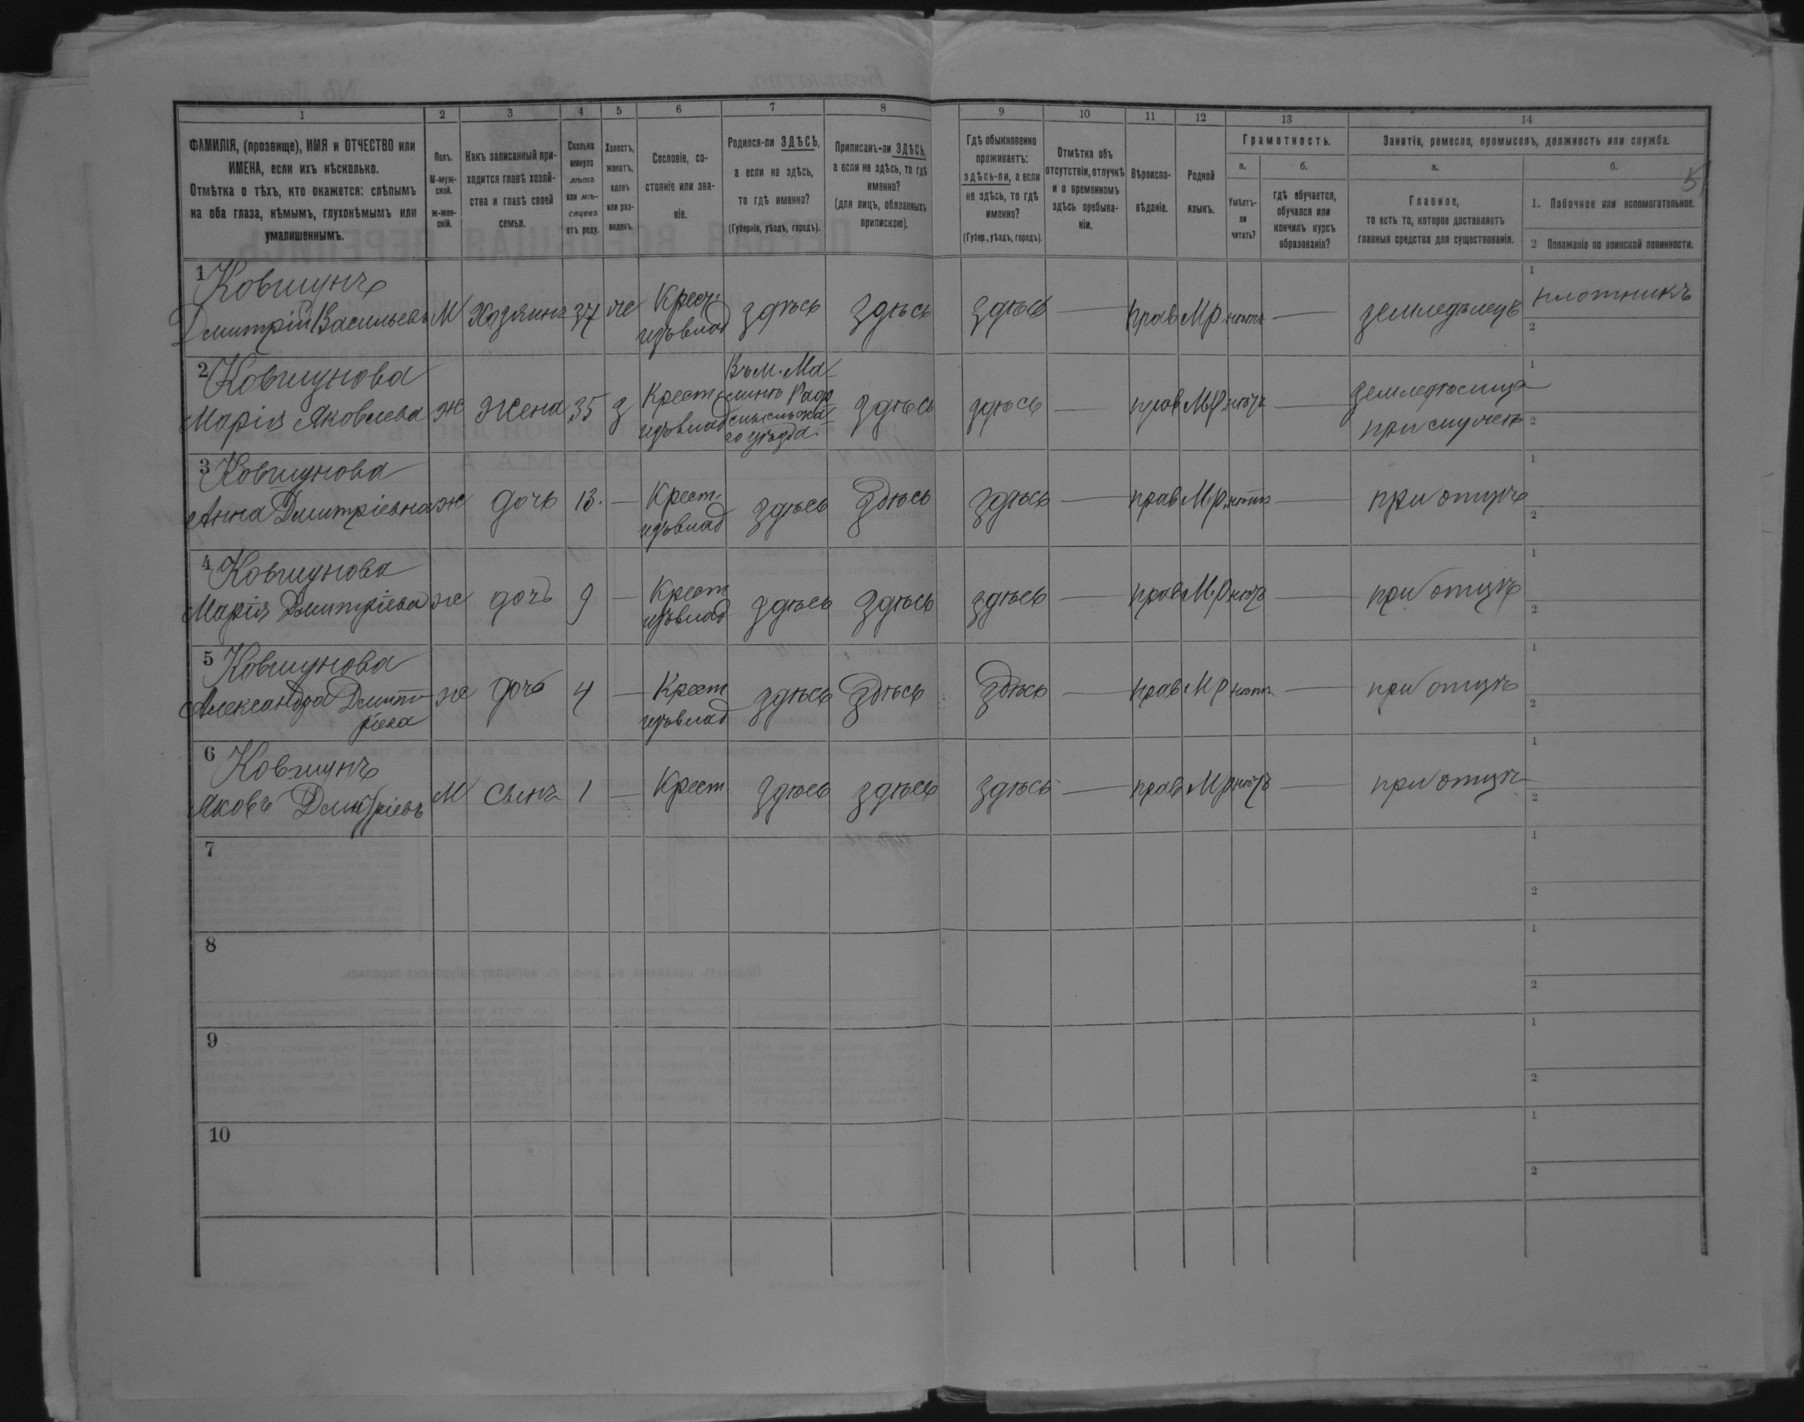 1 2 3 4 5 6 7 8 9 10 11 12 13 14
ФАМИЛІЯ, (прозвище), ИМЯ и ОТЧЕСТВО или
ИМЕНА, если ихъ нѣсколько.
Отмѣтка о тѣхъ, кто окажется: слѣпымъ
на оба глаза, нѣмымъ, глухонѣмымъ или
умалишеннымъ.
Полъ.
М-муж-
ской.
Ж-жен-
скій.
Какъ записанный при-
ходится главѣ хозяй-
ства и главѣ своей
семьи.
Сколько
минуло
лѣтъ
или мѣ-
сяцевъ
отъ роду.
Холостъ,
женатъ,
вдовъ
или раз-
веденъ.
Сословіе, со-
стояніе или зва-
ніе.
Родился-ли ЗДѢСЬ,
а если не здѣсь,
то гдѣ именно?
(Губернія, уѣздъ, городъ).
Приписанъ-ли ЗДѢСЬ,
а если не здѣсь, то гдѣ
именно?
(для лицъ, обязанныхъ
припискою).
Гдѣ обыкновенно
проживаетъ:
здѣсь-ли, а если
не здѣсь, то гдѣ
именно?
(Губер., уѣздъ, городъ).
Отмѣтка объ
отсутствіи, отлучкѣ
и о временномъ
здѣсь пребыва-
ніи.
Вѣроиспо-
вѣданіе.
Родной
языкъ.
Грамотность.
а. б.
Умѣетъ-
ли
читать?
гдѣ обучается,
обучался или
кончилъ курсъ
образованія?
Занятія, ремесло, промыселъ, должность или служба.
а. б.
Главное,
то есть то, которое доставляетъ
главныя средства для существованія.
1. Побочное или вспомогательное.
2 Положеніе по воинской повинности.
5
1 Ковшунъ
Дмитрій Васильевъ М Хозяинъ 37 же Крест. здѣсь здѣсь здѣсь — прав М.р. нѣтъ — земледѣлецъ
1 плотникъ
2
2 Ковшунова
Марія Яковлева ж жена 35 з Крест здѣсь здѣсь — прав М.р. нѣтъ —
уѣзда.
при мужѣ
1
2
3 Ковшунова
Анна Дмитріевна ж дочь 13. — Крест. здѣсь здѣсь здѣсь — прав М.р. нѣтъ — при отцѣ
1
2
4 Ковшунова
Марія Дмитріева ж дочь 9 — Крест здѣсь здѣсь здѣсь — прав М.р нѣтъ — при отцѣ
1
2
5 Ковшунова
Александра Дмит-
ріева ж дочь 4 — Крест здѣсь здѣсь здѣсь — прав М р нѣтъ — при отцѣ
1
2
6 Ковшунъ
Яковъ Дмитріевъ М сынъ 1 — Крест здѣсь здѣсь здѣсь — прав М р нѣтъ — при отцѣ
1
2
7
1
2
8
1
2
9
1
2
10
1
2